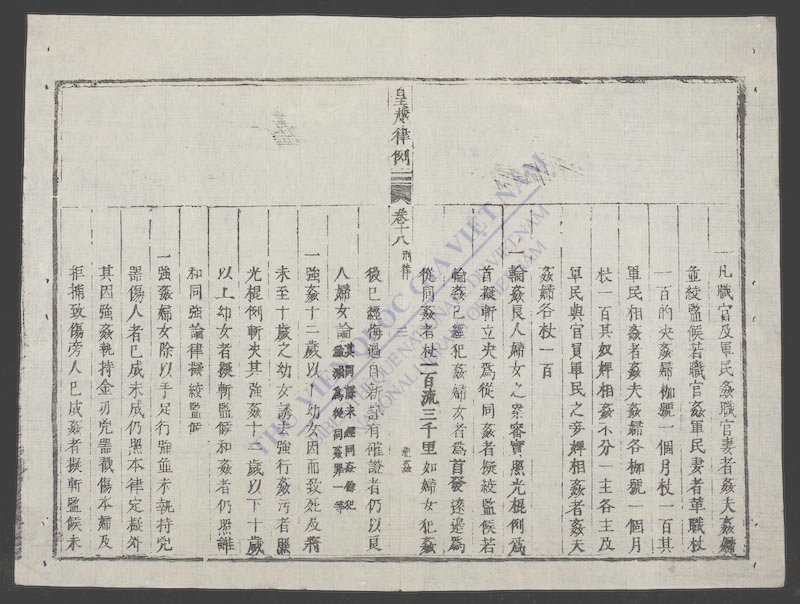 凡職官及軍民姦職官妻者姦夫姦婦
並絞監候若職官姦軍民妻者革職杖
一百的決姦婦枷號一個月杖一百其
軍民相姦者姦夫姦婦各枷號一個月
杖一百其奴婢相姦不分一主各主及
軍民與官員軍民之妾婢相姦者姦夫
姦婦各杖一百
一輪姦良人婦女之案審實照光棍例為
首擬斬立決為從同姦者擬絞監候若
輪姦已經犯姦婦女者為首發邊遠為
從同姦者杖一百流三千里如婦女犯姦
皇越律例
卷十八 刑律
三
犯姦
後已經悔過自新訪有確證者仍以良
人婦女論其同謀未經同姦餘犯並減為從同姦罪一等
一強姦十二歲以下幼女因而致死及將
未至十歲之幼女誘去強行姦污者照
光棍例斬決其強姦十二歲以下十歲
以上幼女者擬斬監候和姦者仍照雖
和同強論律擬絞監候
一強姦婦女除以手足行強並未執持兇
器傷人者已成未成仍照本律定擬外
其因強姦執持金刃兇器戳傷本婦及
拒捕致傷旁人已成姦者擬斬監候未
THƯ VIỆN QUỐC GIA VIỆT NAM
BIBLIOTHÈQUE NATIONALE DU VIETNAM
NATIONAL LIBRARY OF VIETNAM